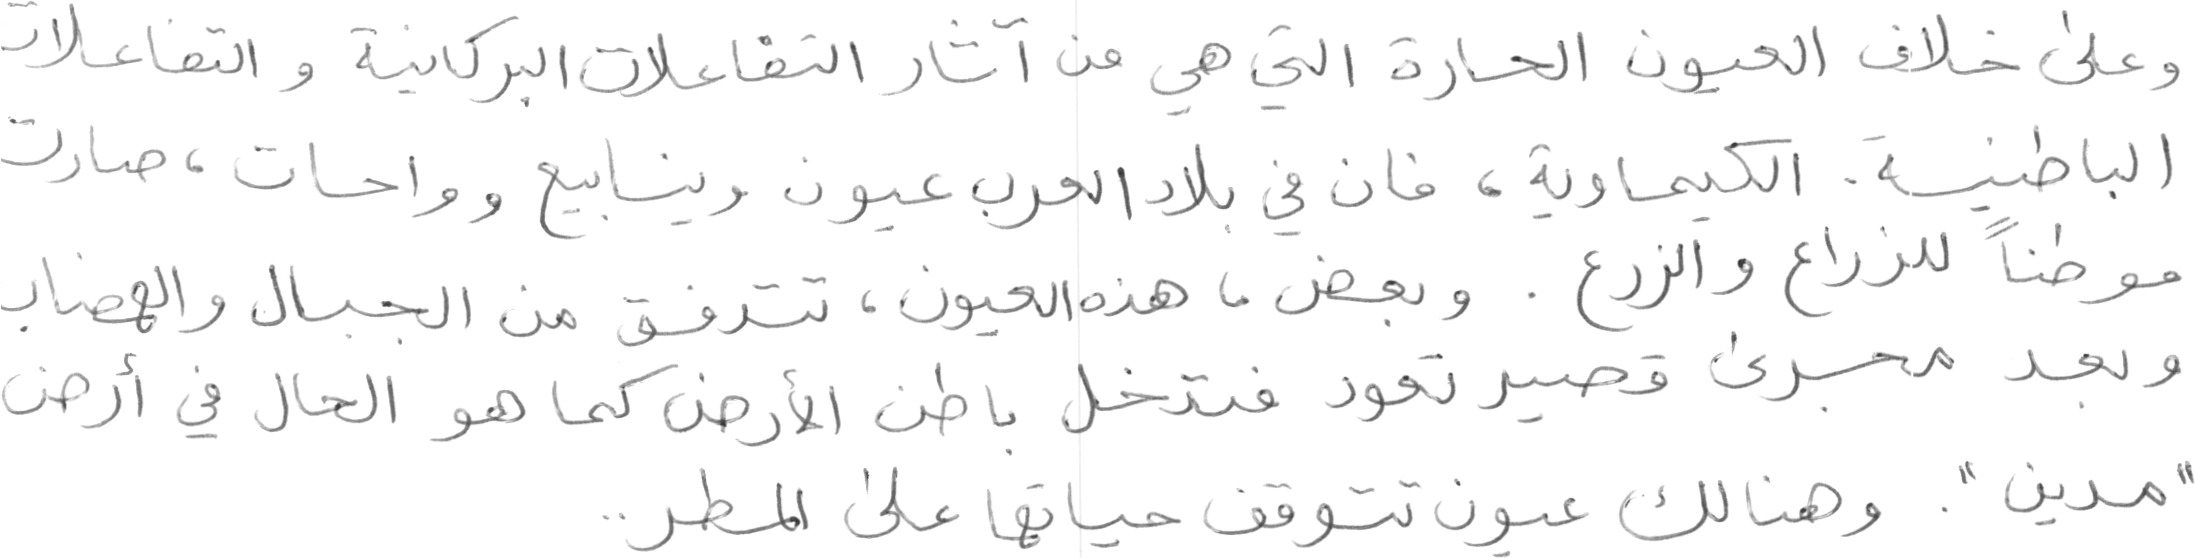 وعلى خلاف العيون الحارة التي هي من آثار التفاعلات البركانية والتفاعلات
الباطنية. الكيماوية، فان في بلاد العرب عيون وينسابيع وواحات، صارت
موطناً للزراع والزرع. وبعض، هذه العيون، تتدفق من الجبال والهضاب
وبعد مجرى قصير تعود فتدخل باطن الأرض كما هو الحال في أرض
"مدين". وهنالك عيون تتوقف حياتها على المطر..